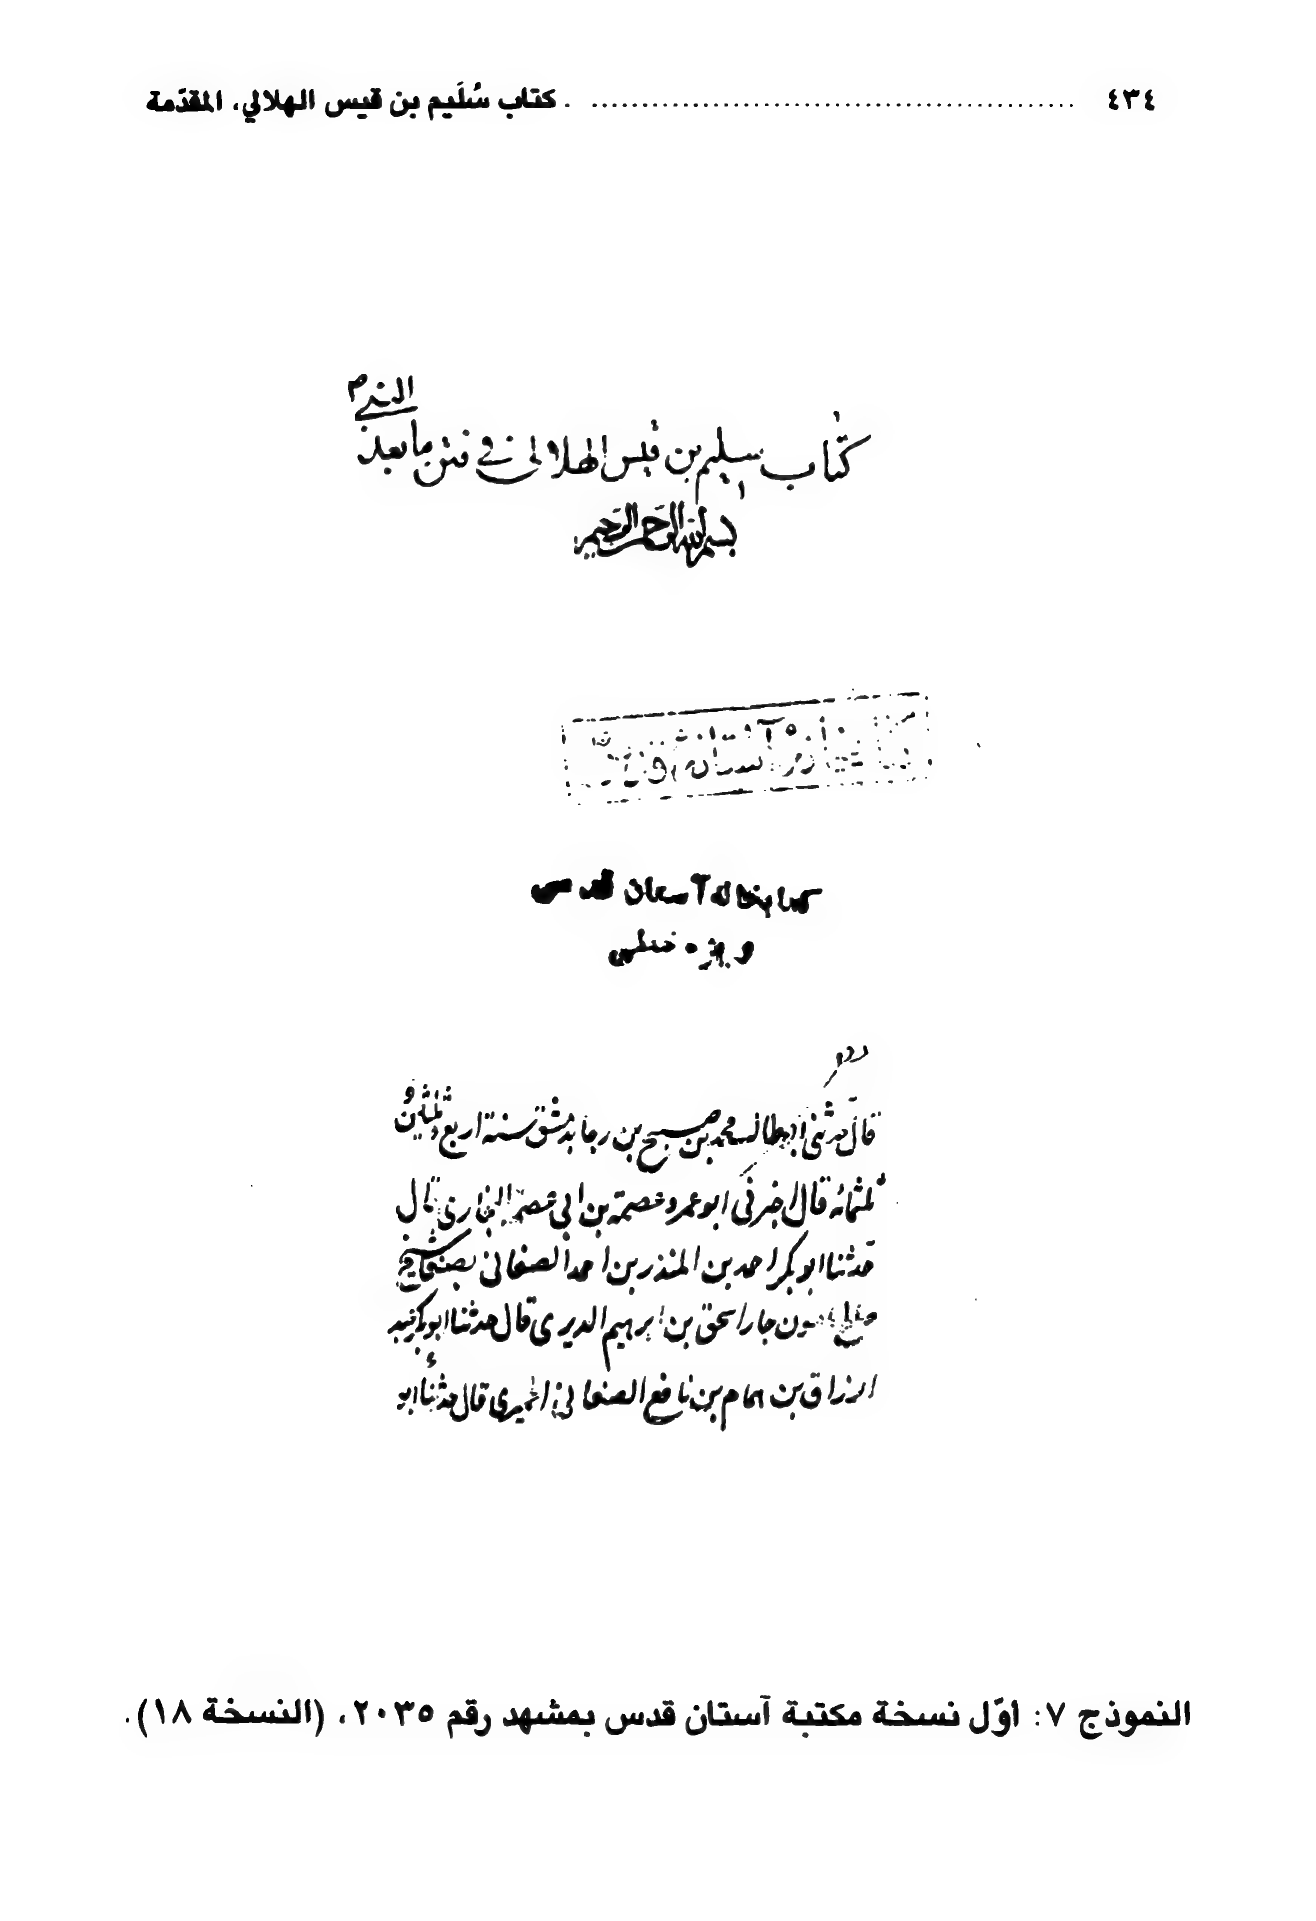 ٤٣٤ ........................................ كتاب سُلَيم بن قيس الهلالي، المقدّمة
النبي ص
كتاب سليم بن قيس الهلالى في فتن ما بعد
بسم الله الرحمن الرحيم
كتابخانه آستان قدس
كتابخانه آستان قدس
ويژه خطى
قال حدثنى ابو طالب محمد بن صبيح بن رجا بدمشق سنة اربع وثلثين و
ثلثمائه قال اخبرنى ابو عمرو عصمة بن ابى عصمة البخارى قال
حدثنا ابو بكر احمد بن المنذر بن احمد الصنعانى بصنعا شيخ
صالح مامون جار اسحق بن ابرهيم الدبرى قال حدثنا ابو بكر عبد
الرزاق بن همام بن نافع الصنعانى الحميرى قال حدثنا ابو
النموذج ٧: أوّل نسخة مكتبة آستان قدس بمشهد رقم ٢٠٣٥، (النسخة ١٨).